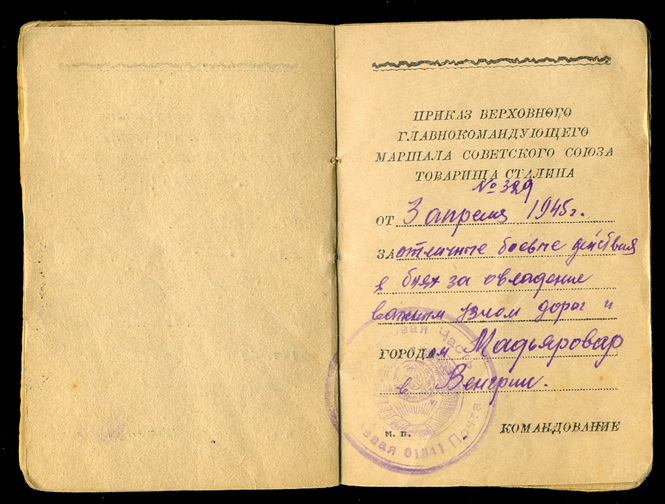 ПРИКАЗ ВЕРХОВНОГО
ГЛАВНОКОМАНДУЮЩЕГО
МАРШАЛА СОВЕТСКОГО СОЮЗА
ТОВАРИЩА СТАЛИНА
№ 329
ОТ 3 апреля 1945 г.
ЗА отличные боевые действия
в боях за овладение
важным узлом дорог и
ГОРОДом Мадьяровар
в Венгрии.
М. П. КОМАНДОВАНИЕ
Полевая Почта
01841